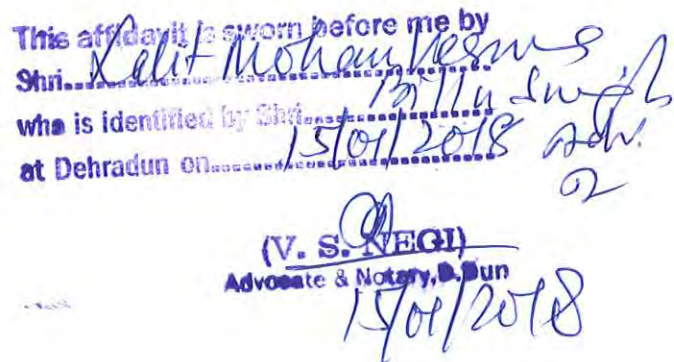 This affidavit is sworn before me by
Shri....Lalit Mohan
who is identified by Shri.... Billu Singh Adv.
at Dehradun on....15/01/2018
(V. S. NEGI)
Advocate & Notary, D.Dun
15/01/2018